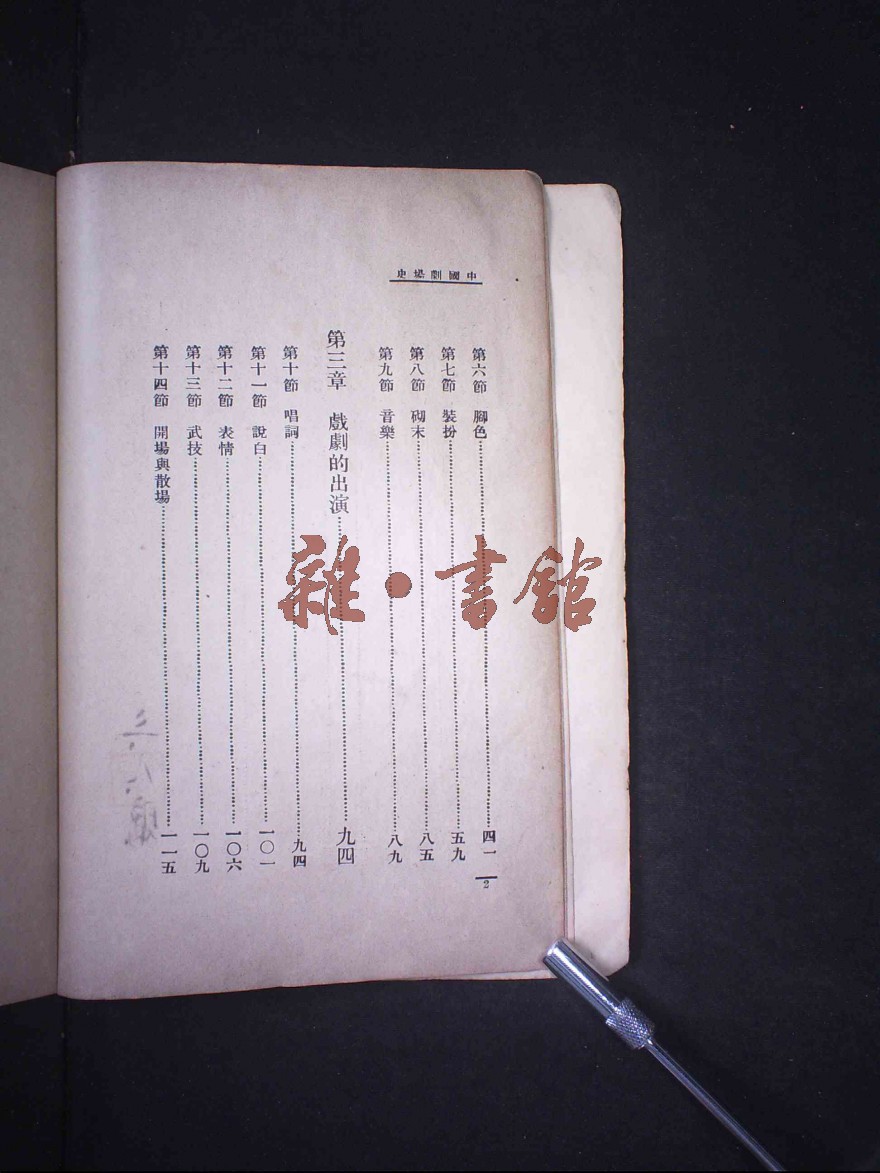 中國劇場史
第六節 腳色 四一
第七節 裝扮 五九
第八節 砌末 八五
第九節 音樂 八九
第三章 戲劇的出演 九四
第十節 唱詞 九四
第十一節 說白 一〇一
第十二節 表情 一〇六
第十三節 武技 一〇九
第十四節 開場與散場 一一五
2
雜·書館